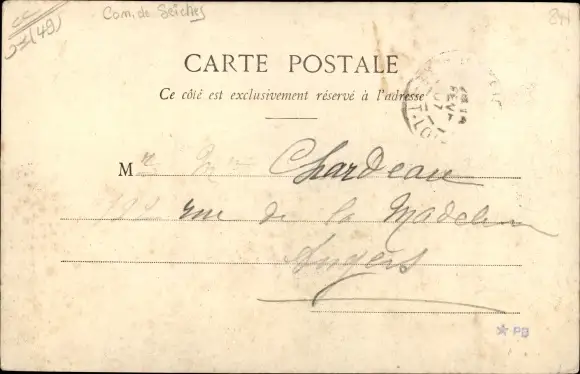 Com. de Seiches
(49)
CARTE POSTALE
Ce côté est exclusivement réservé à l'adresse
FEVR
07
M Chardeau
rue de la Madeleine
Angers
PB